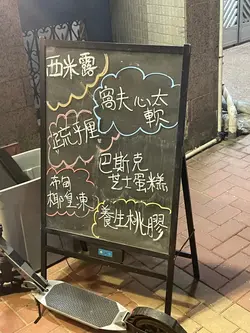 西米露
窩夫心太
軟
疏乎厘
巴斯克
芝士蛋糕
布甸
椰皇凍
養生桃膠